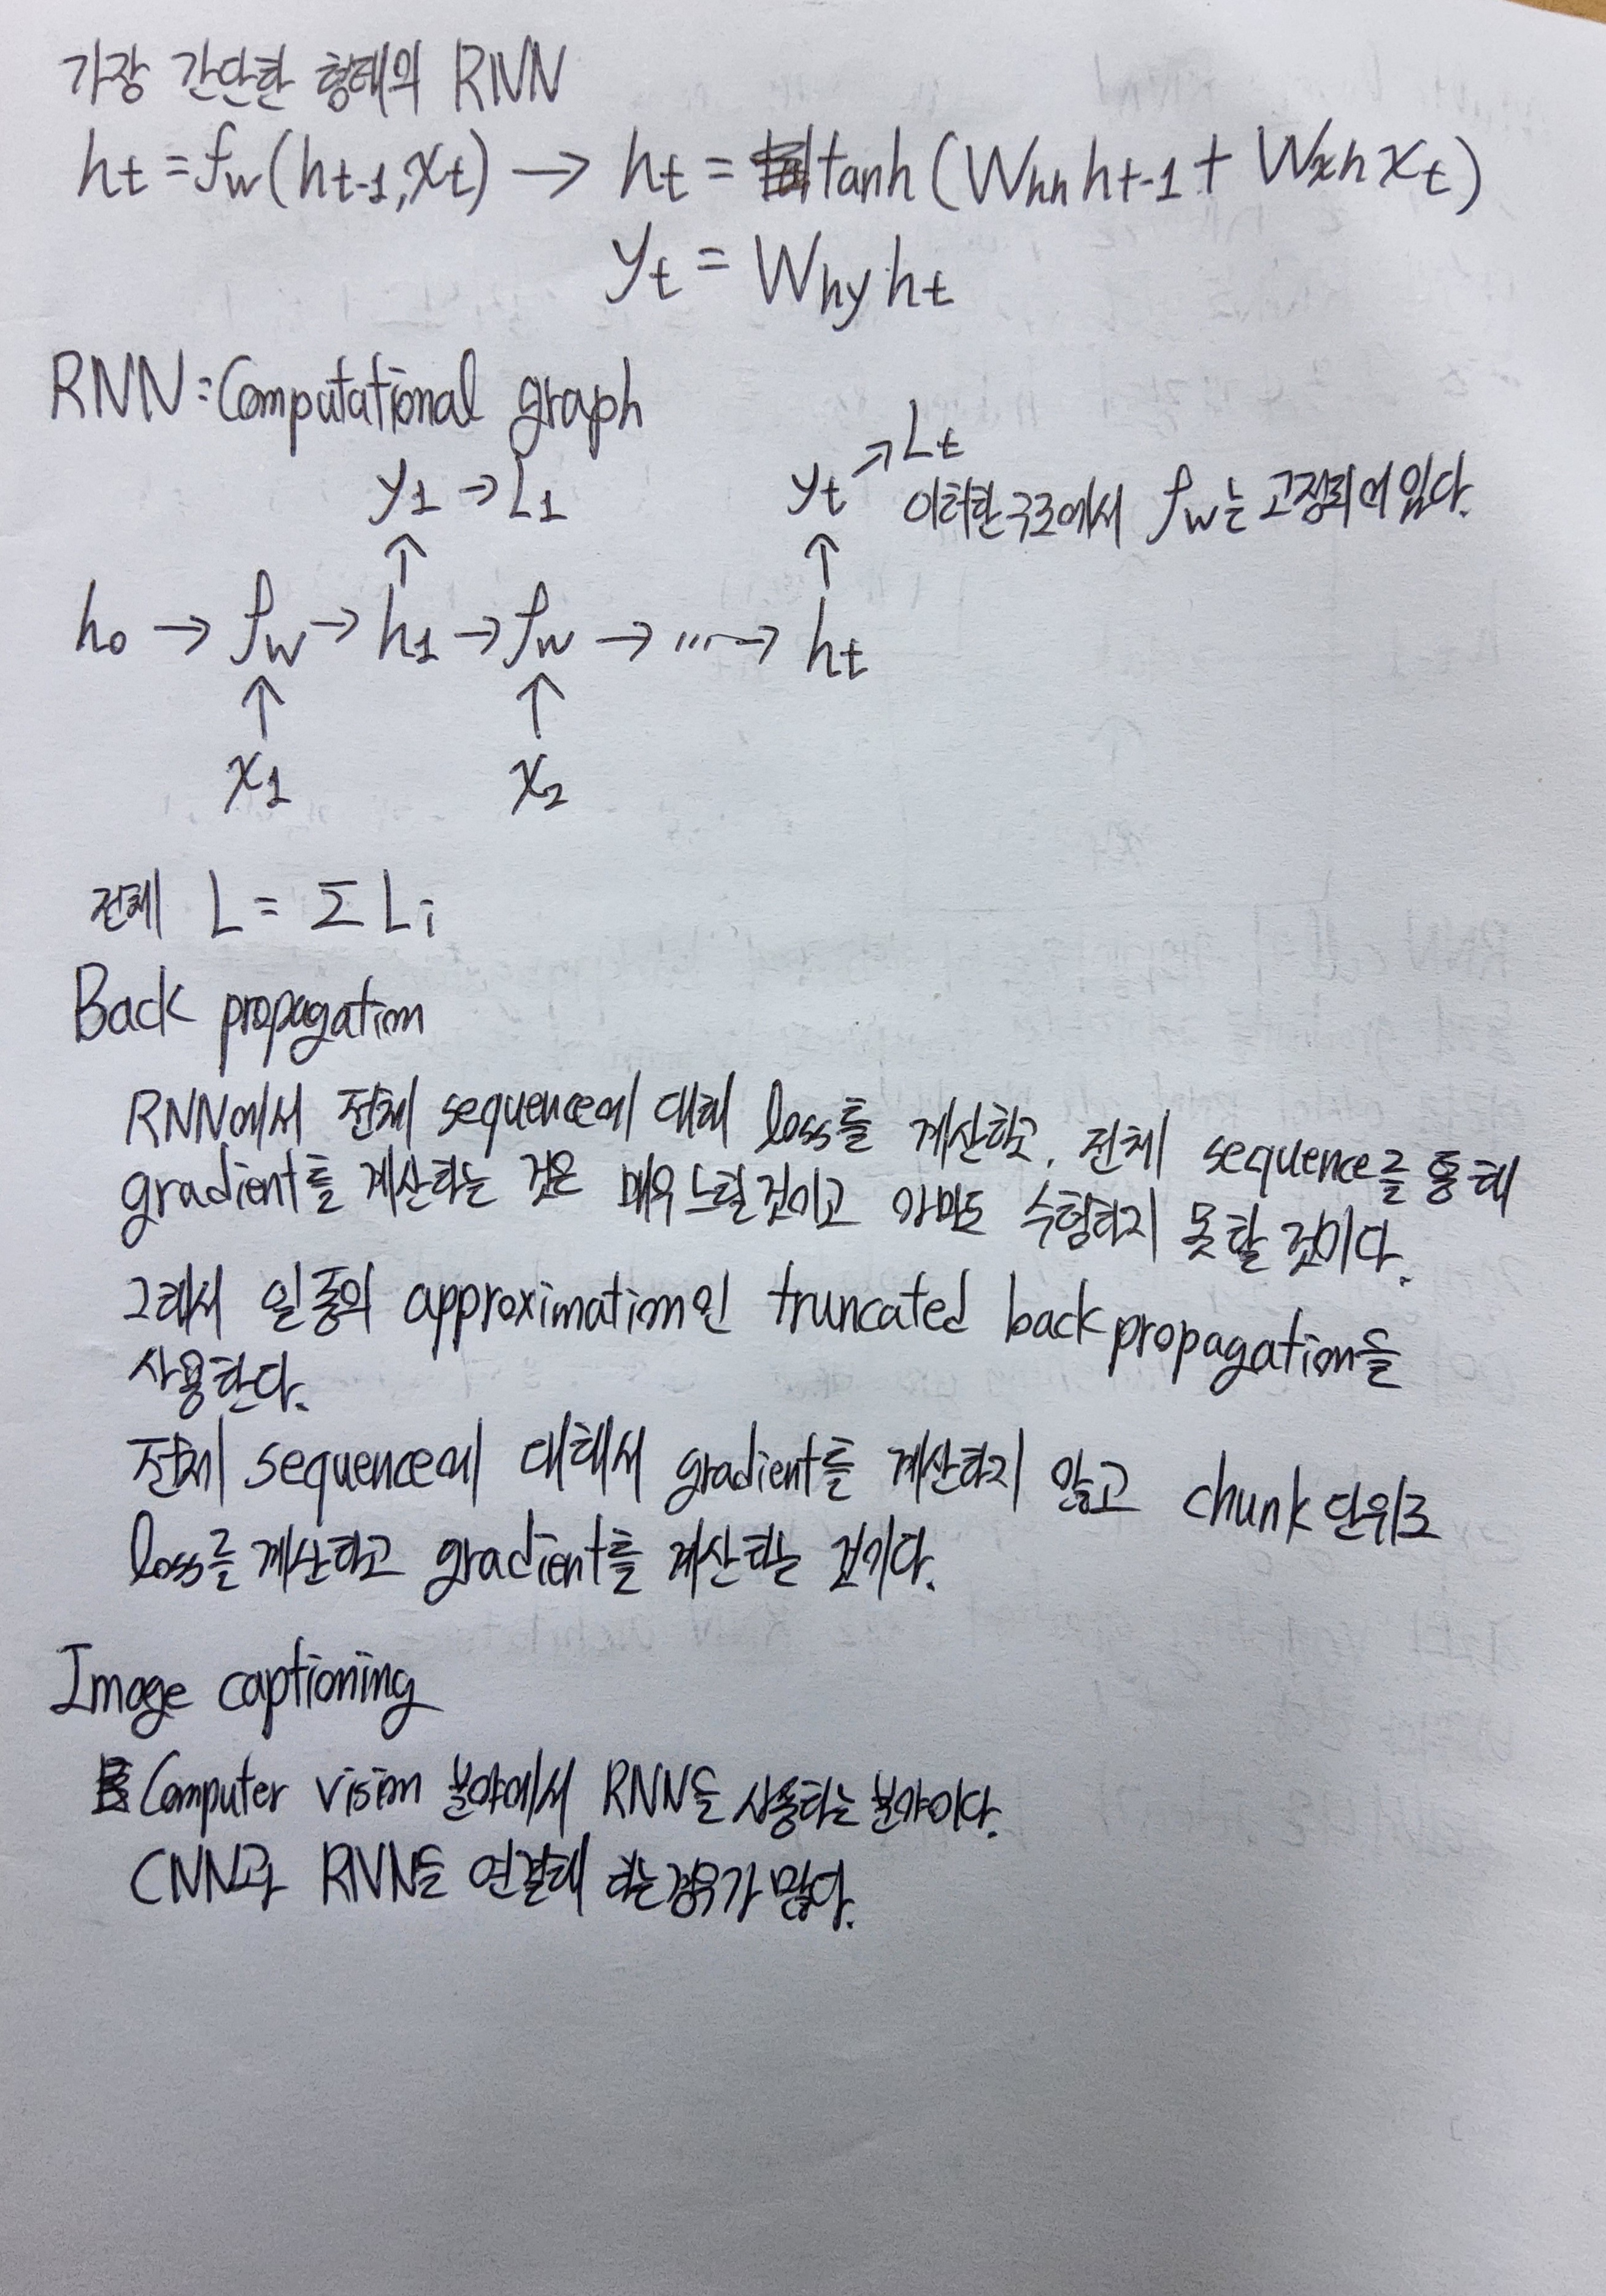 가장 간단한 형태의 RNN
ht = fw(ht-1, xt) → ht = tanh(Whh ht-1 + Wxh xt)
yt = Why ht
RNN : Computational graph
y1 → L1 yt → Lt
이러한 구조에서 fw는 고정되어 있다.
↑ ↑
h0 → fw → h1 → fw → ... → ht
↑ ↑
x1 x2
전체 L = Σ Li
Back propagation
RNN에서 전체 sequence에 대해 loss를 계산하고, 전체 sequence를 통해
gradient를 계산하는 것은 매우 느릴 것이고 아마도 수행하지 못할 것이다.
그래서 일종의 approximation인 truncated back propagation을
사용한다.
전체 sequence에 대해서 gradient를 계산하지 않고 chunk 단위로
loss를 계산하고 gradient를 계산하는 것이다.
Image captioning
Computer vision 분야에서 RNN을 사용하는 분야이다.
CNN과 RNN을 연결해 하는 경우가 많다.